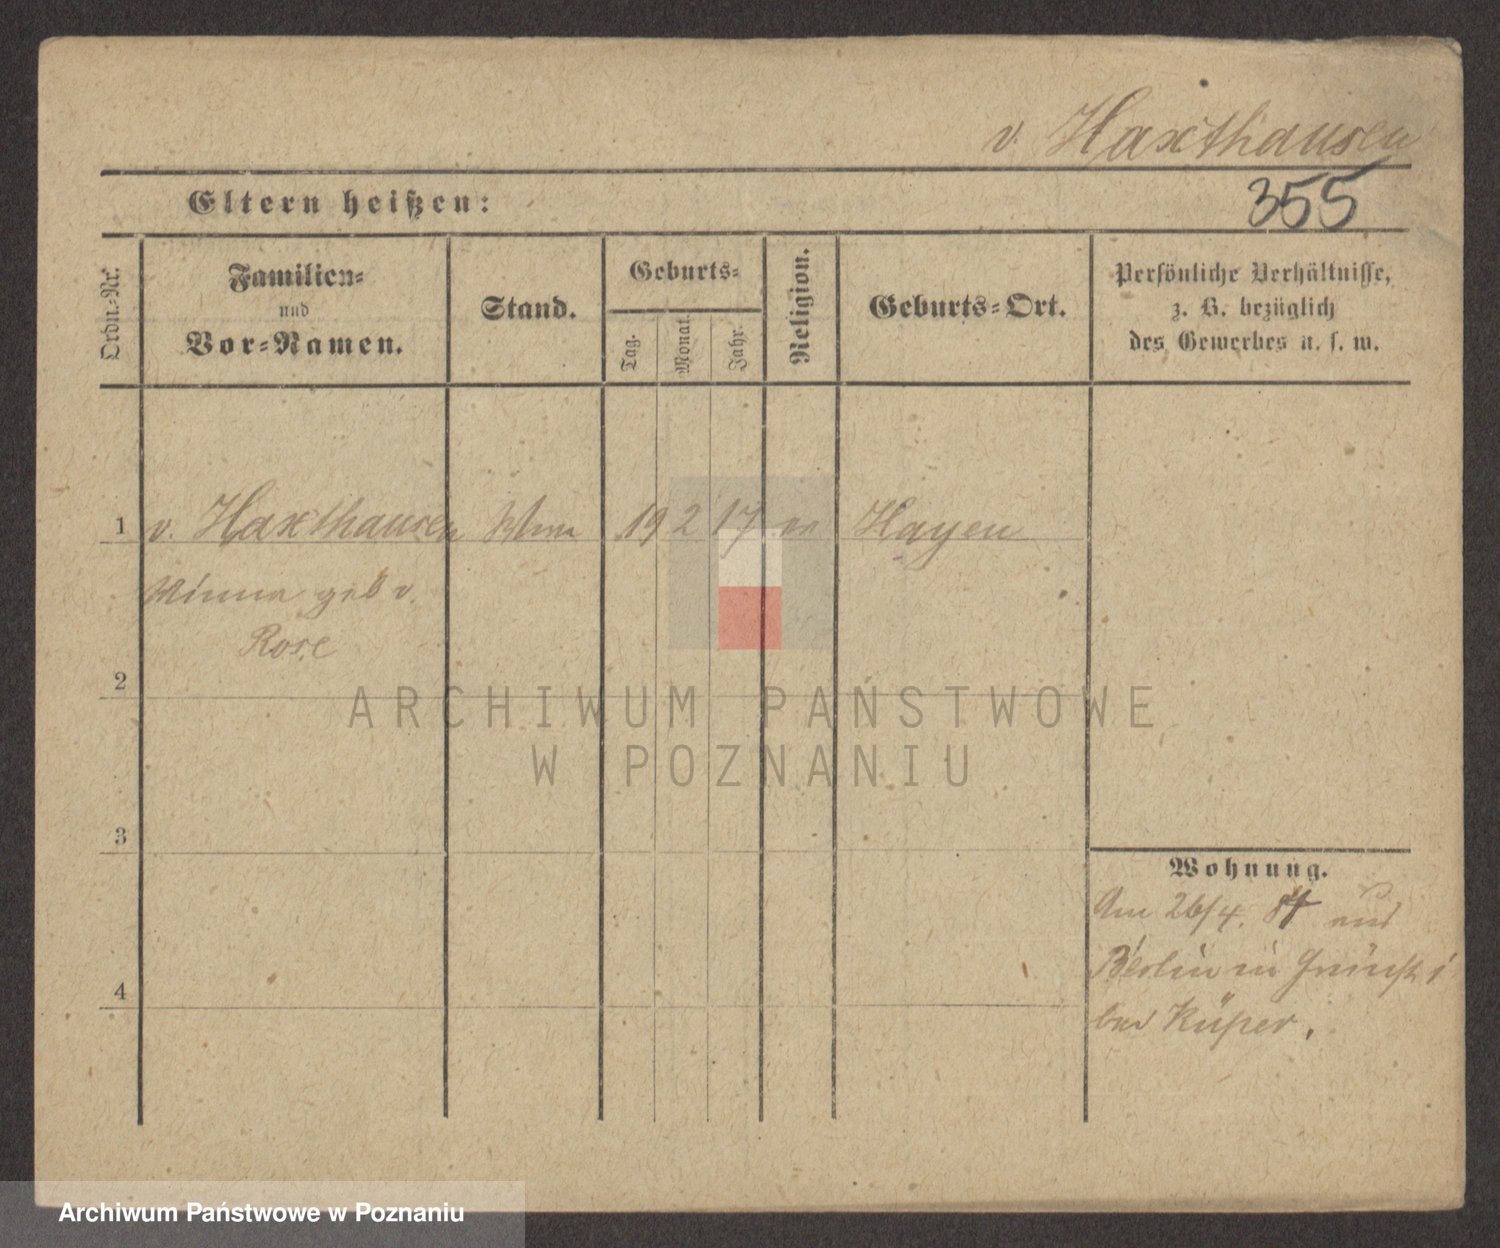 v. Haxthausen
Eltern heißen:
355
Ordn.-Nr.
Familien-
und
Vor-Namen.
Stand.
Geburts-
Tag.
Monat.
Jahr.
Religion.
Geburts-Ort.
Persönliche Verhältnisse,
z. B. bezüglich
des Gewerbes u. s. w.
1 v. Haxthausen 19 2 17 Hayen
Minna geb v.
Rose
2
ARCHIWUM PAŃSTWOWE
W POZNANIU
3
Wohnung.
Am 26/4. 84 aus
Berlin in 1
bei Küper.
4
Archiwum Państwowe w Poznaniu